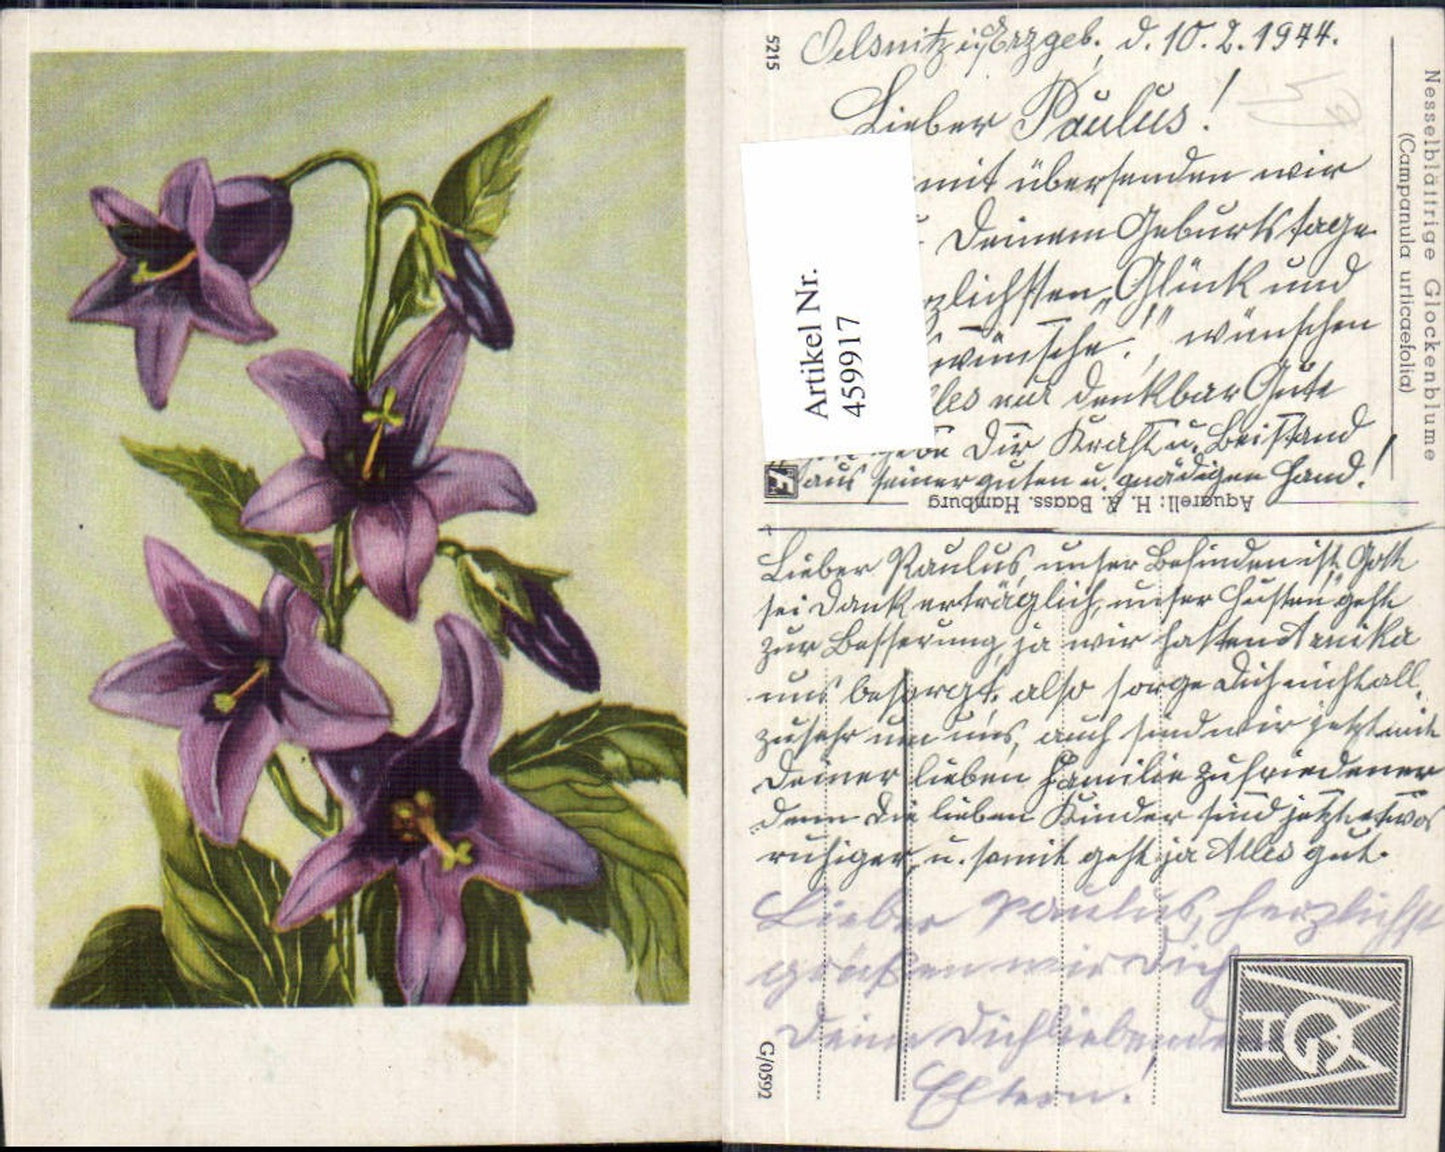 5215
Oelsnitz i/Erzgeb., d. 10.2.1944.
Lieber Paulus!
mit übersenden wir
Deinem Geburtstage
zlichsten „Glück und
wünsche!", wünschen
les nur denkbar Gute
gebe Dir Kraft u. Beistand
aus seiner guten u. gnädigen Hand!
Artikel Nr.
459917
Nesselblättrige Glockenblume
(Campanula urticaefolia)
Aquarell: H. A. Baass. Hamburg
Lieber Paulus, unser Befinden ist, Gott
sei Dank erträglich, unser Husten geht
zur Besserung, ja wir hatten Arnika
uns besorgt, also sorge Dich nicht all
zusehr um uns, auch sind wir jetzt mit
Deiner lieben Familie zufriedener
denn die lieben Kinder sind jetzt etwas
ruhiger, u. somit geht ja Alles gut.
Lieber Paulus, herzlichst
grüßen wir Dich
Deine Dichliebenden
Eltern!
G/0592